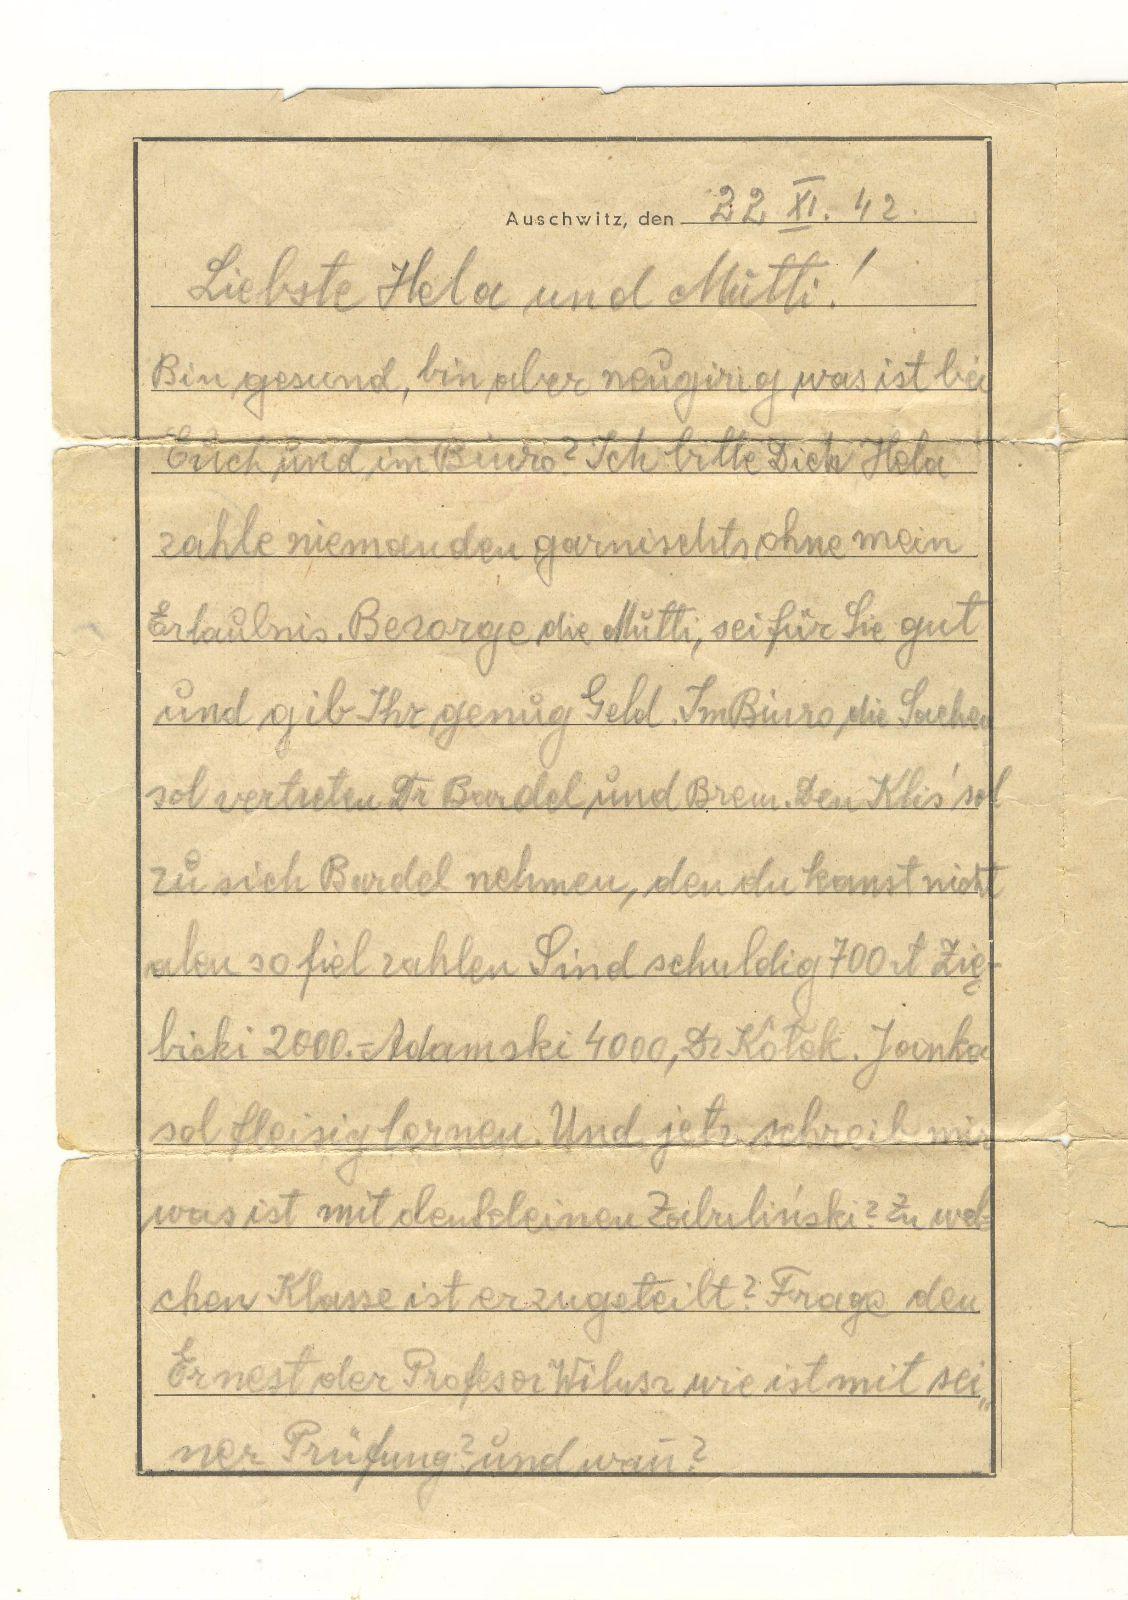 Auschwitz, den 22 XI. 42.
Liebste Hela und Mutti!
Bin gesund, bin aber neugirig was ist bei
Euch und im Büuro? Ich bitte Dich Hela
zahle niemanden garnischts ohne mein
Erlaubnis. Besorge die Mutti, sei für Sie gut
und gib Ihr genug Geld. Im Büuro die Sachen
sol vertreten Dr Bardel und Brem. Den Kliś sol
zu sich Bardel nehmen, den du kanst nicht
alen so fiel zahlen Sind schuldig 700 zł Zię-
bicki 2000.- Adamski 4000, Dr Kotok. Janka
sol fleisig lernen. Und jetz schreib mir
was ist mit den kleinen Zabuliński? Zu wel-
chen Klasse ist er zugeteilt? Frage den
Ernest der Profesor Wilusz wie ist mit sei„
ner Prüfung? und wan̄?